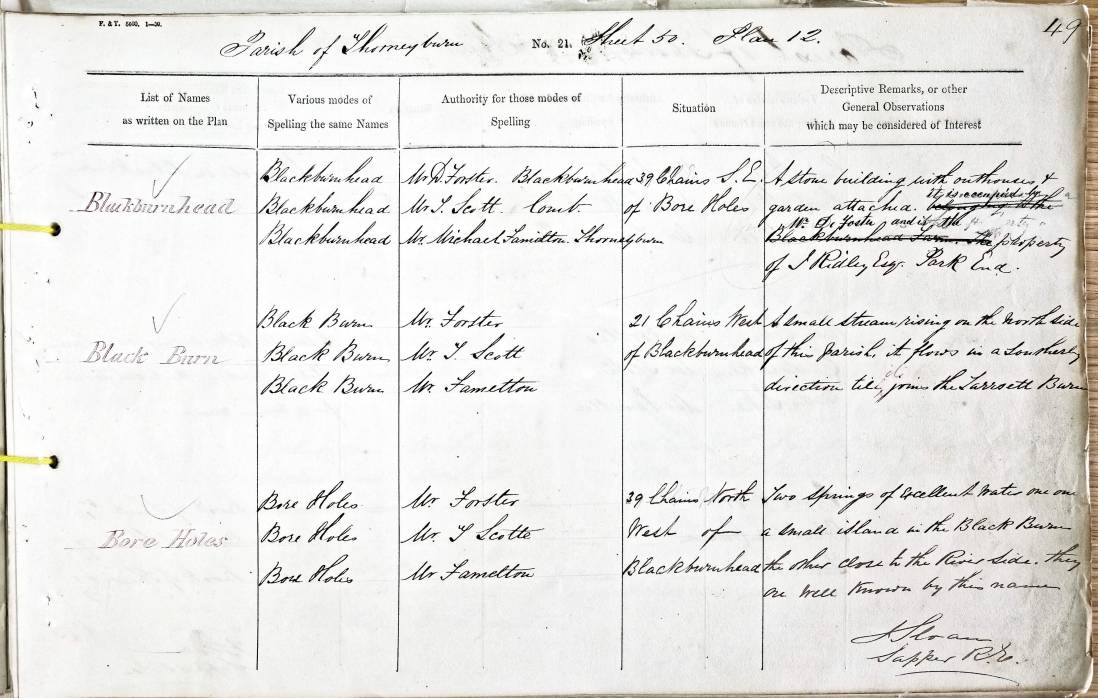 F. & Y. 5600. 1—59.
49
Parish of Thorneyburn No. 21. Sheet 50. Plan 12.
List of Names
as written on the Plan
Various modes of
Spelling the same Names
Authority for those modes of
Spelling
Situation
Descriptive Remarks, or other
General Observations
which may be considered of Interest
Blackburnhead
Blackburnhead
Blackburnhead
Blackburnhead
Mr D. Forster. Blackburnhead
Mr T. Scott Comb.
Mr Michael Famelton. Thorneyburn
39 Chains S.E.
of Bore Holes
A stone building with outhouses &
garden attached. it is occupied by
Mr. D. Foster and is the
Blackburnhead Farm. The property
of J Ridley Esqr. Park End.
Black Burn
Black Burn
Black Burn
Black Burn
Mr. Forster
Mr T. Scott
Mr. Famelton
21 Chains West
of Blackburnhead
A small stream rising on the North side
of this parish, it flows in a Southerly
direction till it joins the Tarsett Burn
Bore Holes
Bore Holes
Bore Holes
Bore Holes
Mr. Forster
Mr. T Scotte
Mr Famelton
39 Chains North
West of
Blackburnhead
Two springs of excellent water one on
a small island in the Black Burn
the other close to the River side. they
are well known by this name
J Sloan
Sapper R.E.